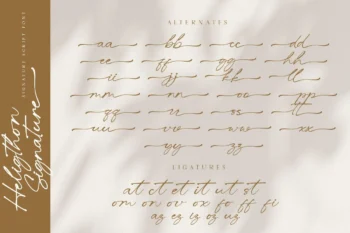 Heligthon
Signature
SIGNATURE SCRIPT FONT
ALTERNATES
aa bb cc dd
ee ff gg hh
ii jj kk ll
mm rr oo pp
qq rr ss tt
uu vv ww xx
yy zz
LIGATURES
at ct et it ut st
om on ov ox fo ff fi
az ez iz oz uz